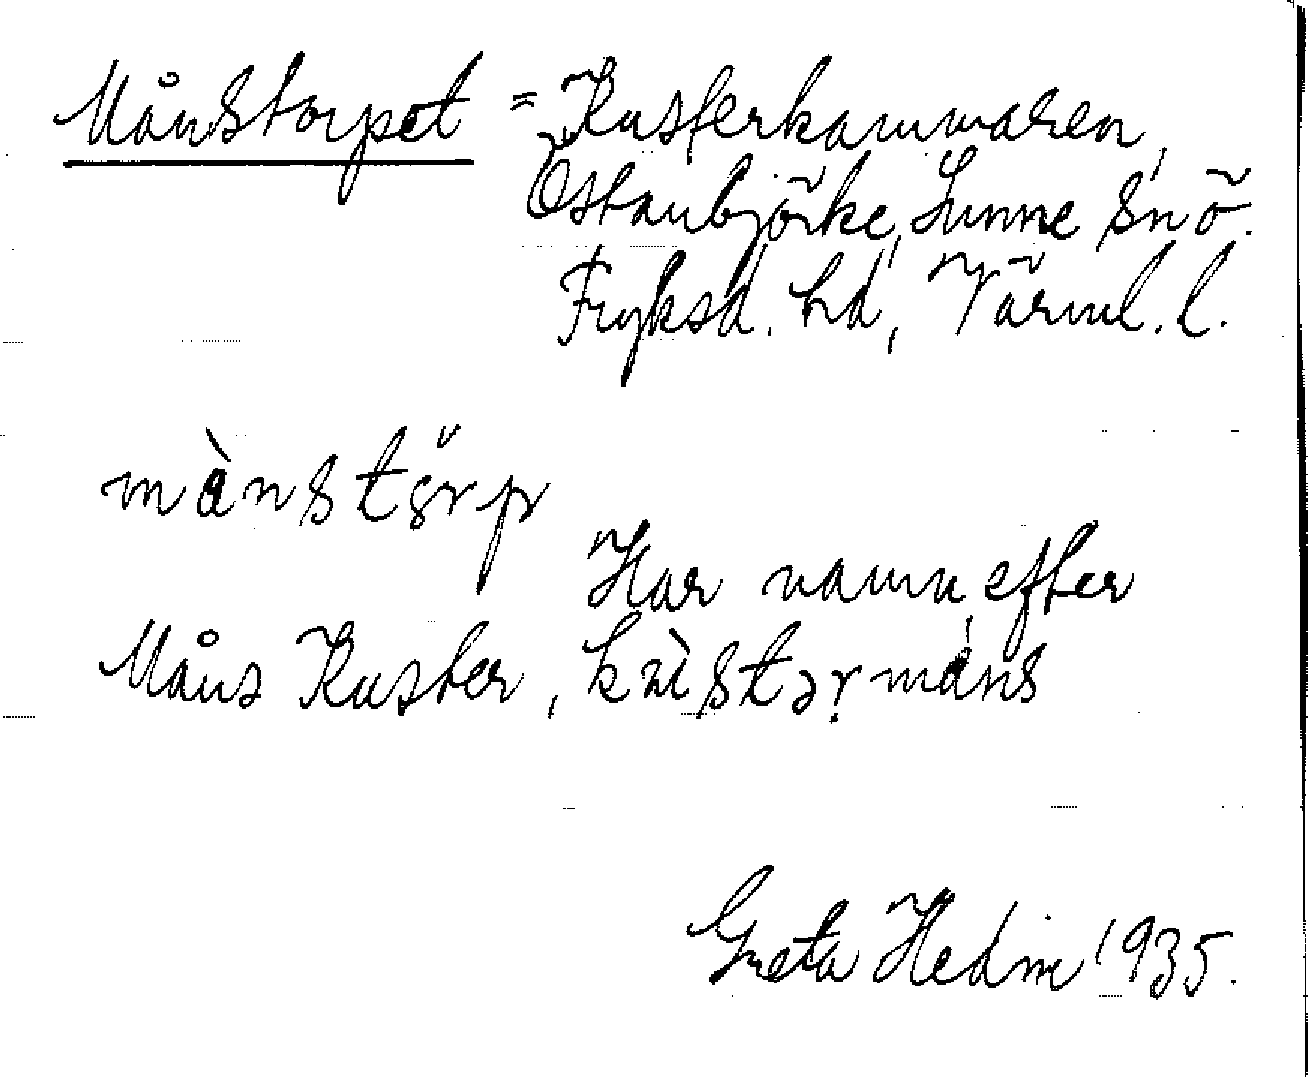 Månstorpet = Kusterkammaren,
Östanbjörke, Sunne snö.
Fryksd. hd, Värml. l.
månstörp
Har namn efter
Måns Kuster, kùstər måns
Greta Hedin 1935.